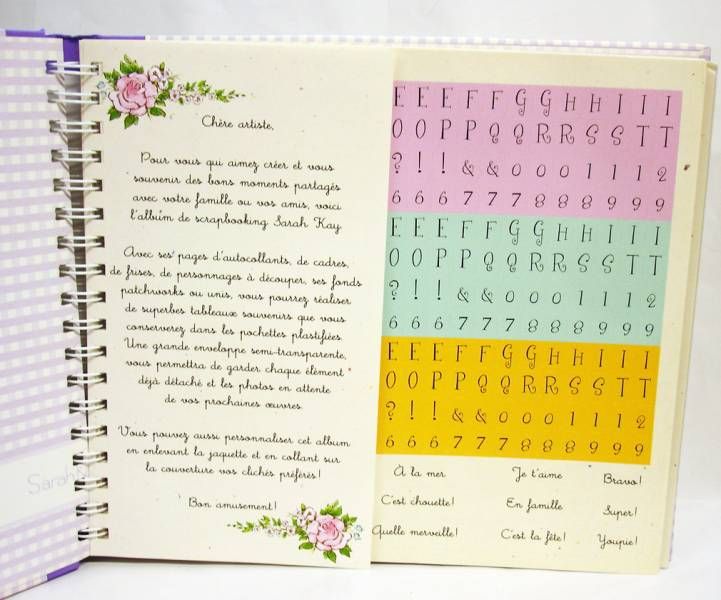 Chère artiste,
Pour vous qui aimez créer et vous
souvenir des bons moments partagés
avec votre famille ou vos amis, voici
l'album de scrapbooking Sarah Kay
Avec ses pages d'autocollants, de cadres,
de frises, de personnages à découper, ses fonds
patchworks ou unis, vous pourrez réaliser
de superbes tableaux souvenirs que vous
conserverez dans les pochettes plastifiées.
Une grande enveloppe semi-transparente,
vous permettra de garder chaque élément
déjà détaché et les photos en attente
de vos prochaines œuvres.
Vous pouvez aussi personnaliser cet album
en enlevant la jaquette et en collant sur
la couverture vos clichés préférés!
Bon amusement!
E E E F F G G H H I I I
O O P P Q Q R R S S T T
? ! ! & & 0 0 0 1 1 1 2
6 6 6 7 7 7 8 8 8 9 9 9
E E E F F G G H H I I I
O O P P Q Q R R S S T T
? ! ! & & 0 0 0 1 1 1 2
6 6 6 7 7 7 8 8 8 9 9 9
E E E F F G G H H I I I
O O P P Q Q R R S S T T
? ! ! & & 0 0 0 1 1 1 2
6 6 6 7 7 7 8 8 8 9 9 9
À la mer Je t'aime Bravo!
C'est chouette! En famille Super!
Quelle merveille! C'est la fête! Youpie!
Sarah